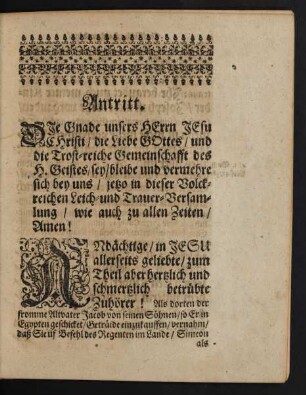 Antritt.
DIe Gnade unsers HErrn JEsu
CHristi / die Liebe GOttes / und
die Trost-reiche Gemeinschafft des
H. Geistes / sey / bleibe und vermehre
sich bey uns / jetzo in dieser Volck-
reichen Leich- und Trauer-Versam-
lung / wie auch zu allen Zeiten /
Amen!
ANdächtige / in JESU
allerseits geliebte / zum
Theil aber hertzlich und
schmertzlich betrübte
Zuhörer! Als dorten der
fromme Altvater Jacob von seinen Söhnen / so Er in
Egypten geschicket / Geträide einzukauffen / vernahm /
daß Sie uf Befehl des Regenten im Lande / Simeon
als